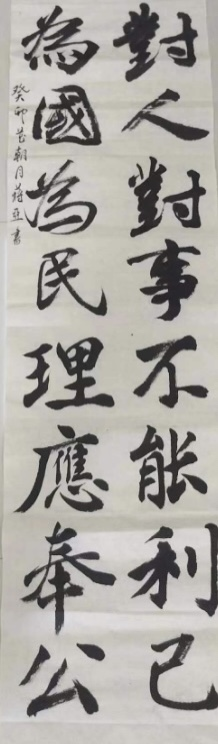 對人對事不能利己
為國為民理應奉公
癸卯花朝月蔣亞書